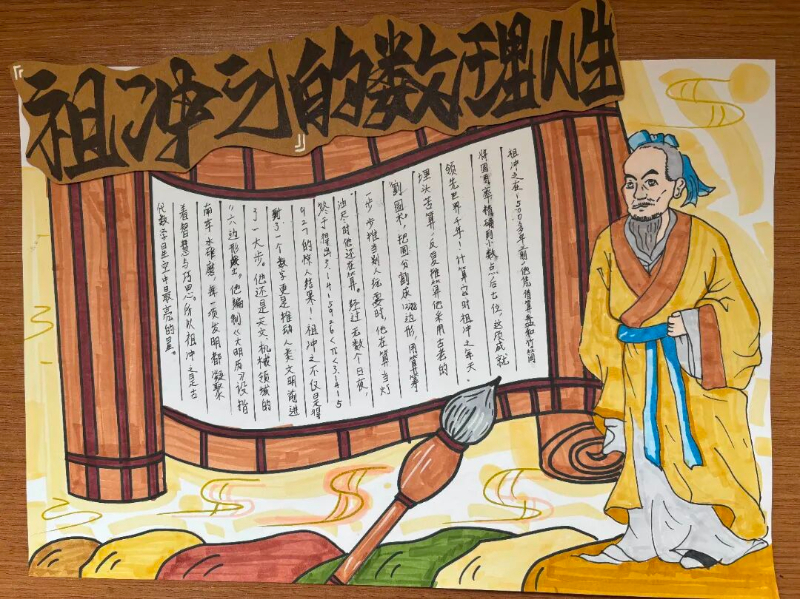 『祖冲之』的数理人生
祖冲之在1500多年之前,他凭借算筹和竹简
将圆周率精确到小数点后七位,这项成就
领先世界千年!计算它时祖冲之每天
埋头苦算,反复推算他采用古老的
割圆术,把圆分割成边形,用算筹
一步步推当别人玩耍时,他在算当灯
油尽时他还在算。经过无数个日夜,
终于得出3.1415926<π<3.1415
927的惊人结果!祖冲之不仅是将
了一个数字更是推动人类文明前进
了一大步。他还是天文机械领域的
"六边形战士"。他编制《大明历》设指
南车,水碓磨,每一项发明都凝聚
着智慧与巧思。所以祖冲之是古
代数学星空中最亮的星。